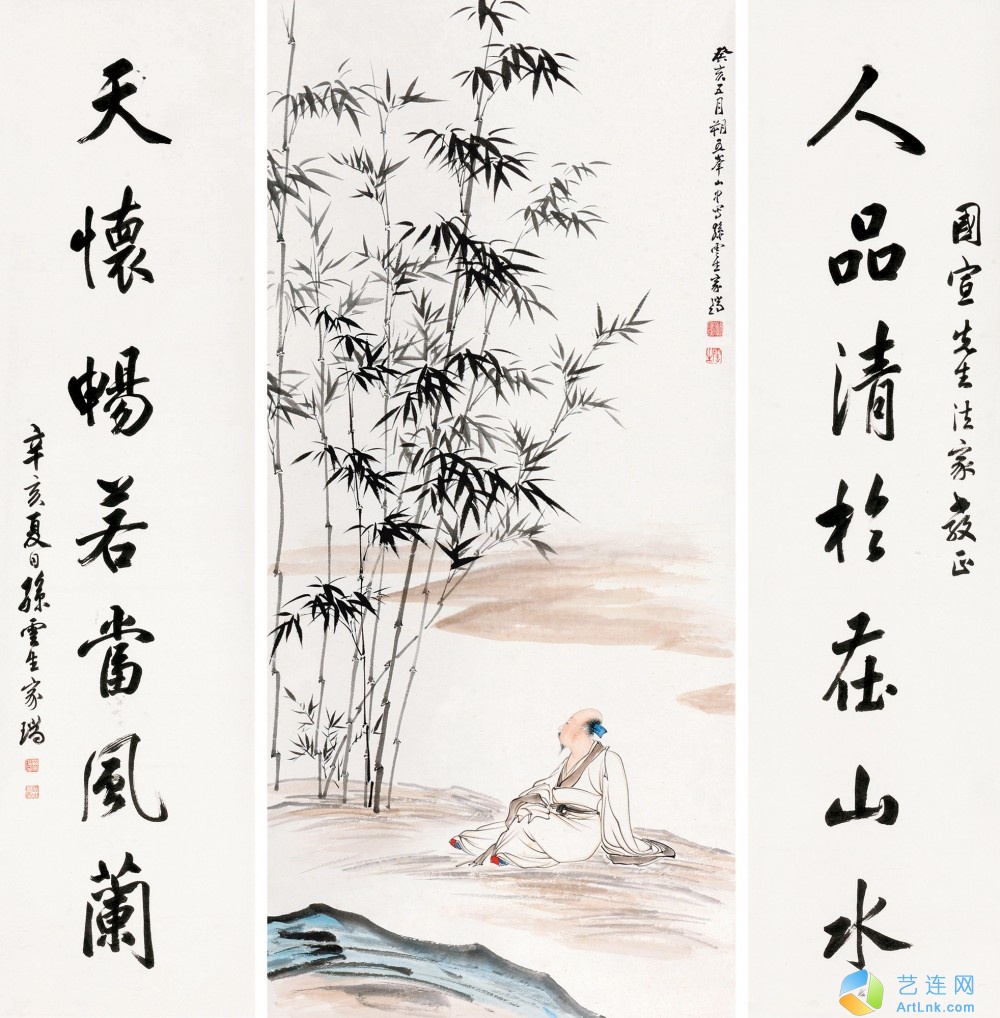 國宣先生法家教正
人品清於在山水
癸亥五月朔五峯山中寫孫雲生家瑞
天懷暢若當風蘭
辛亥夏日孫雲生家瑞
艺连网
ArtLnk.com